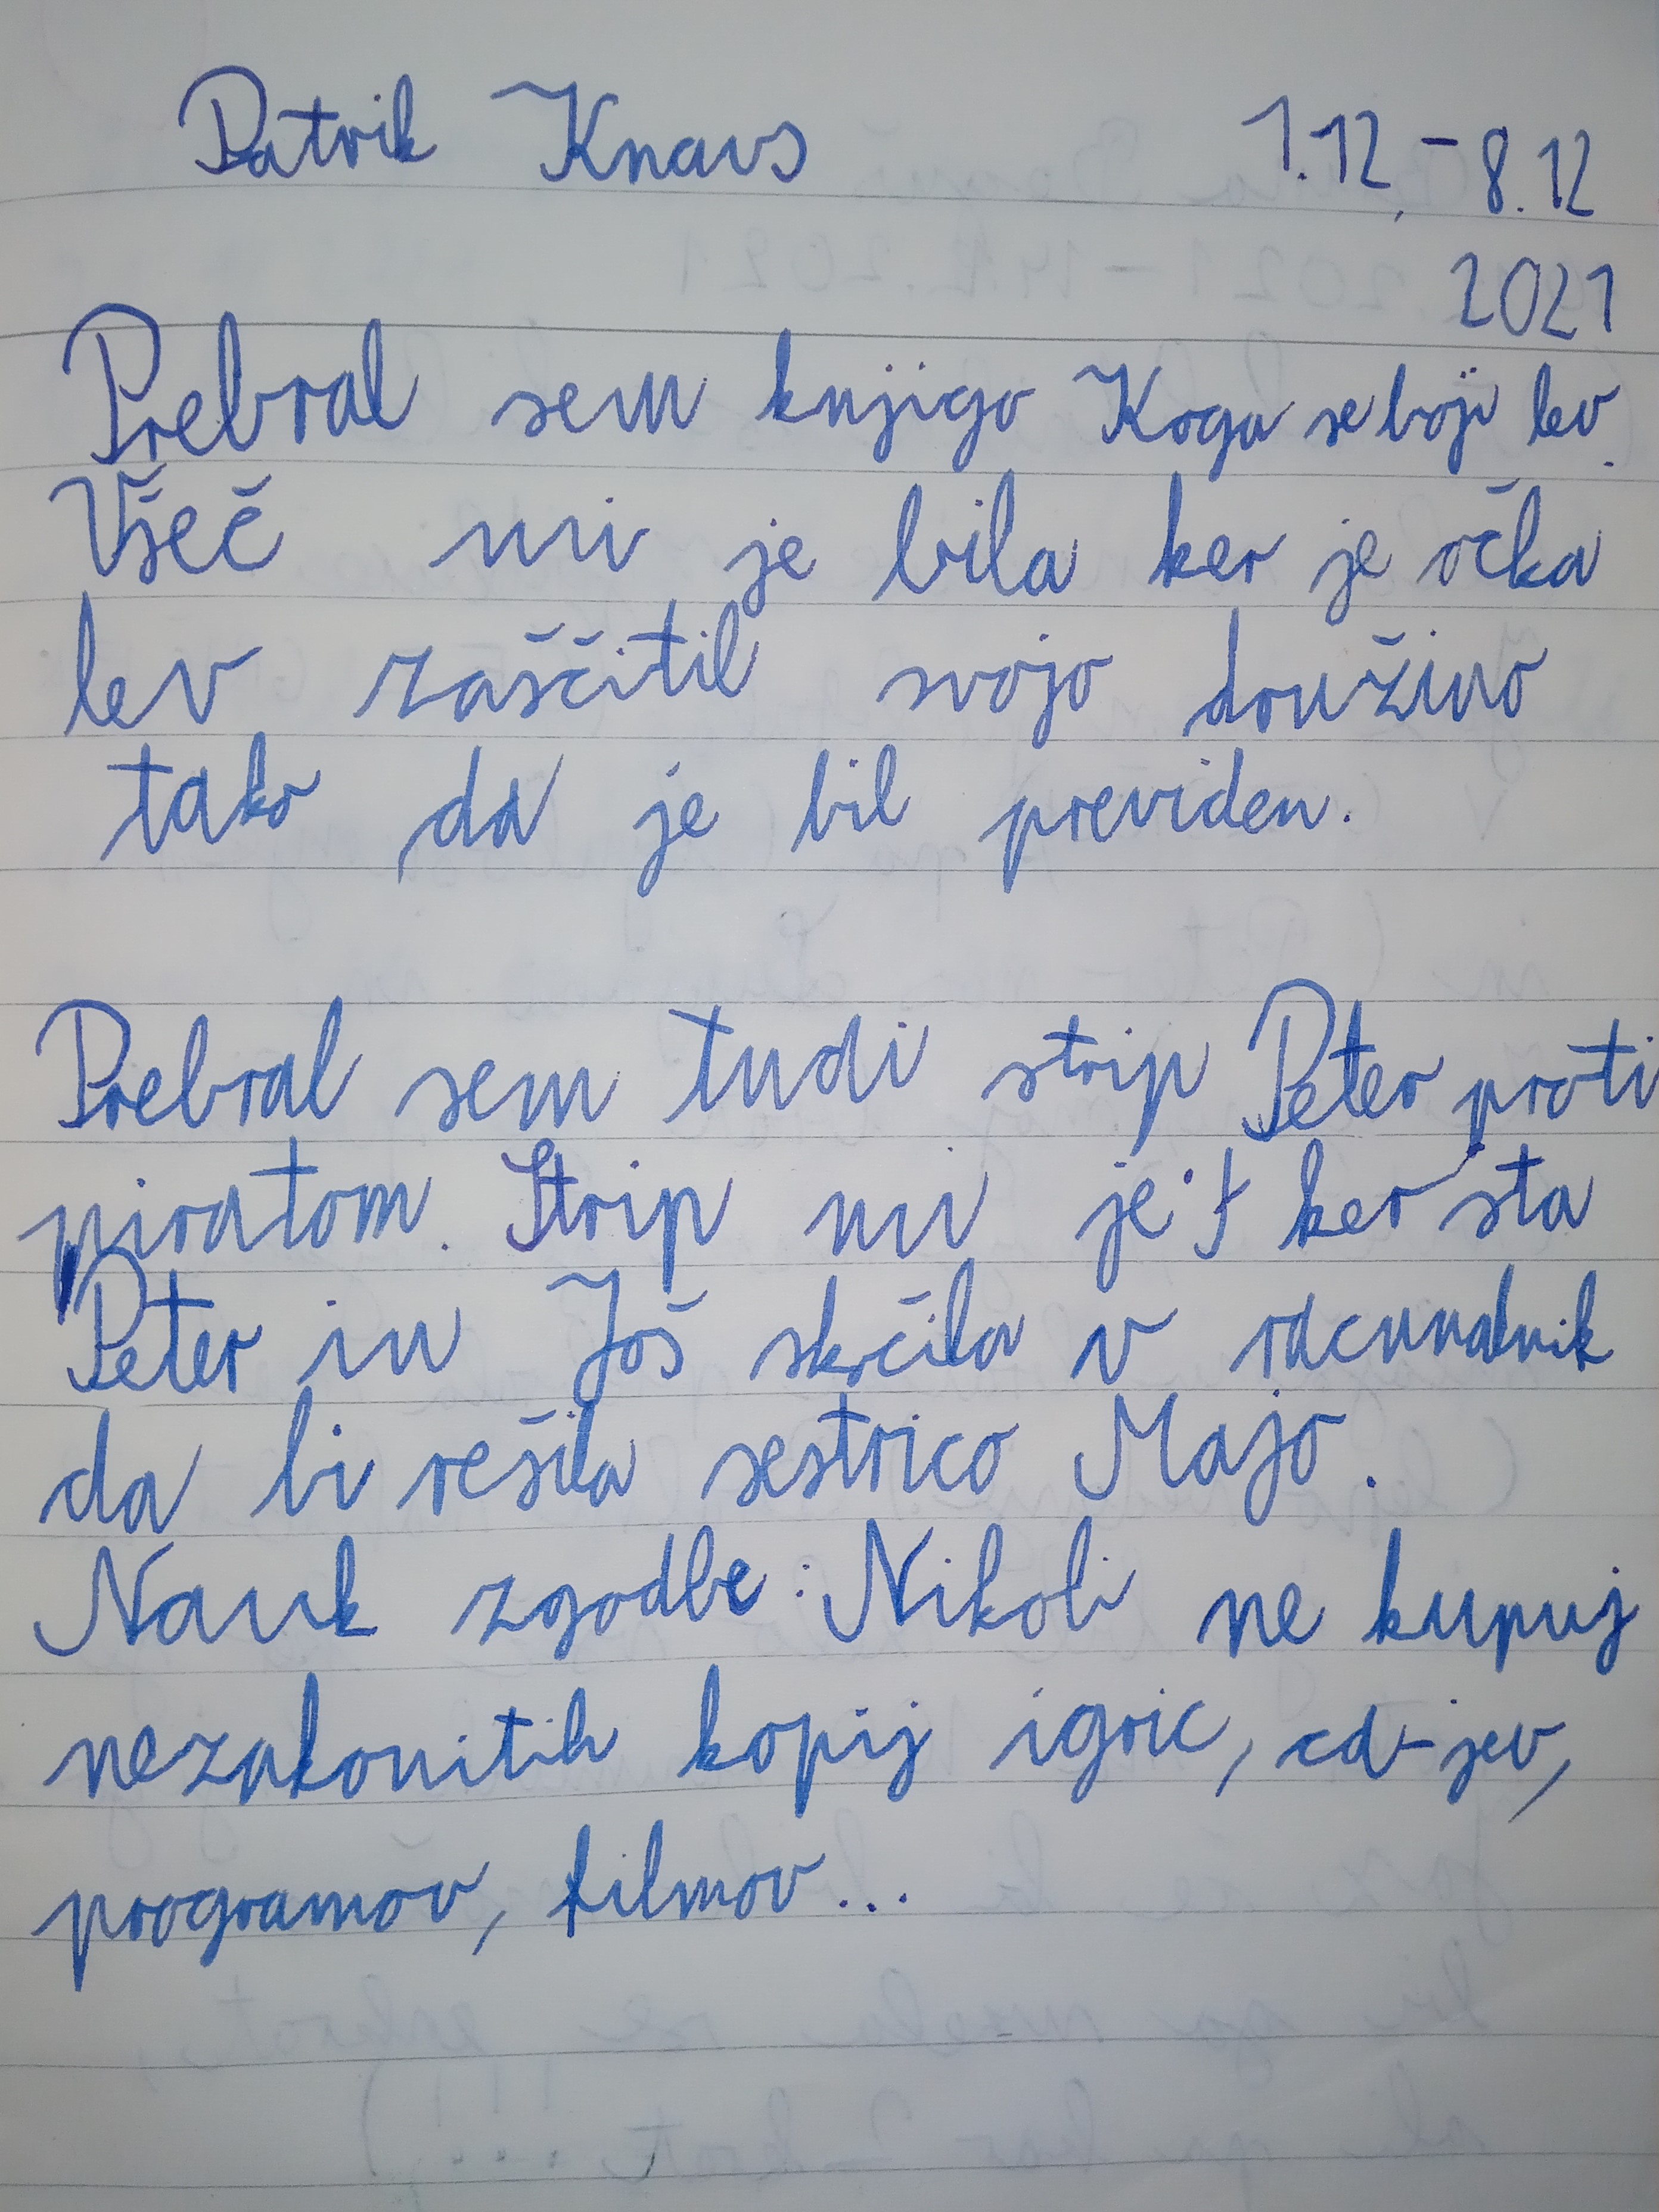 Patrik Knavs 1.12. - 8.12
2021
Prebral sem knjigo Koga se boji lev.
Všeč mi je bila ker je očka
lev zaščitil svojo družino
tako da je bil previden.
Prebral sem tudi strip Peter proti
piratom. Strip mi je ker sta
Peter in Još skrčila v racunalnik
da bi rešila sestrico Majo.
Nauk zgodbe: Nikoli ne kupuj
nezakonitih kopij igric, cd-jev,
programov, filmov...